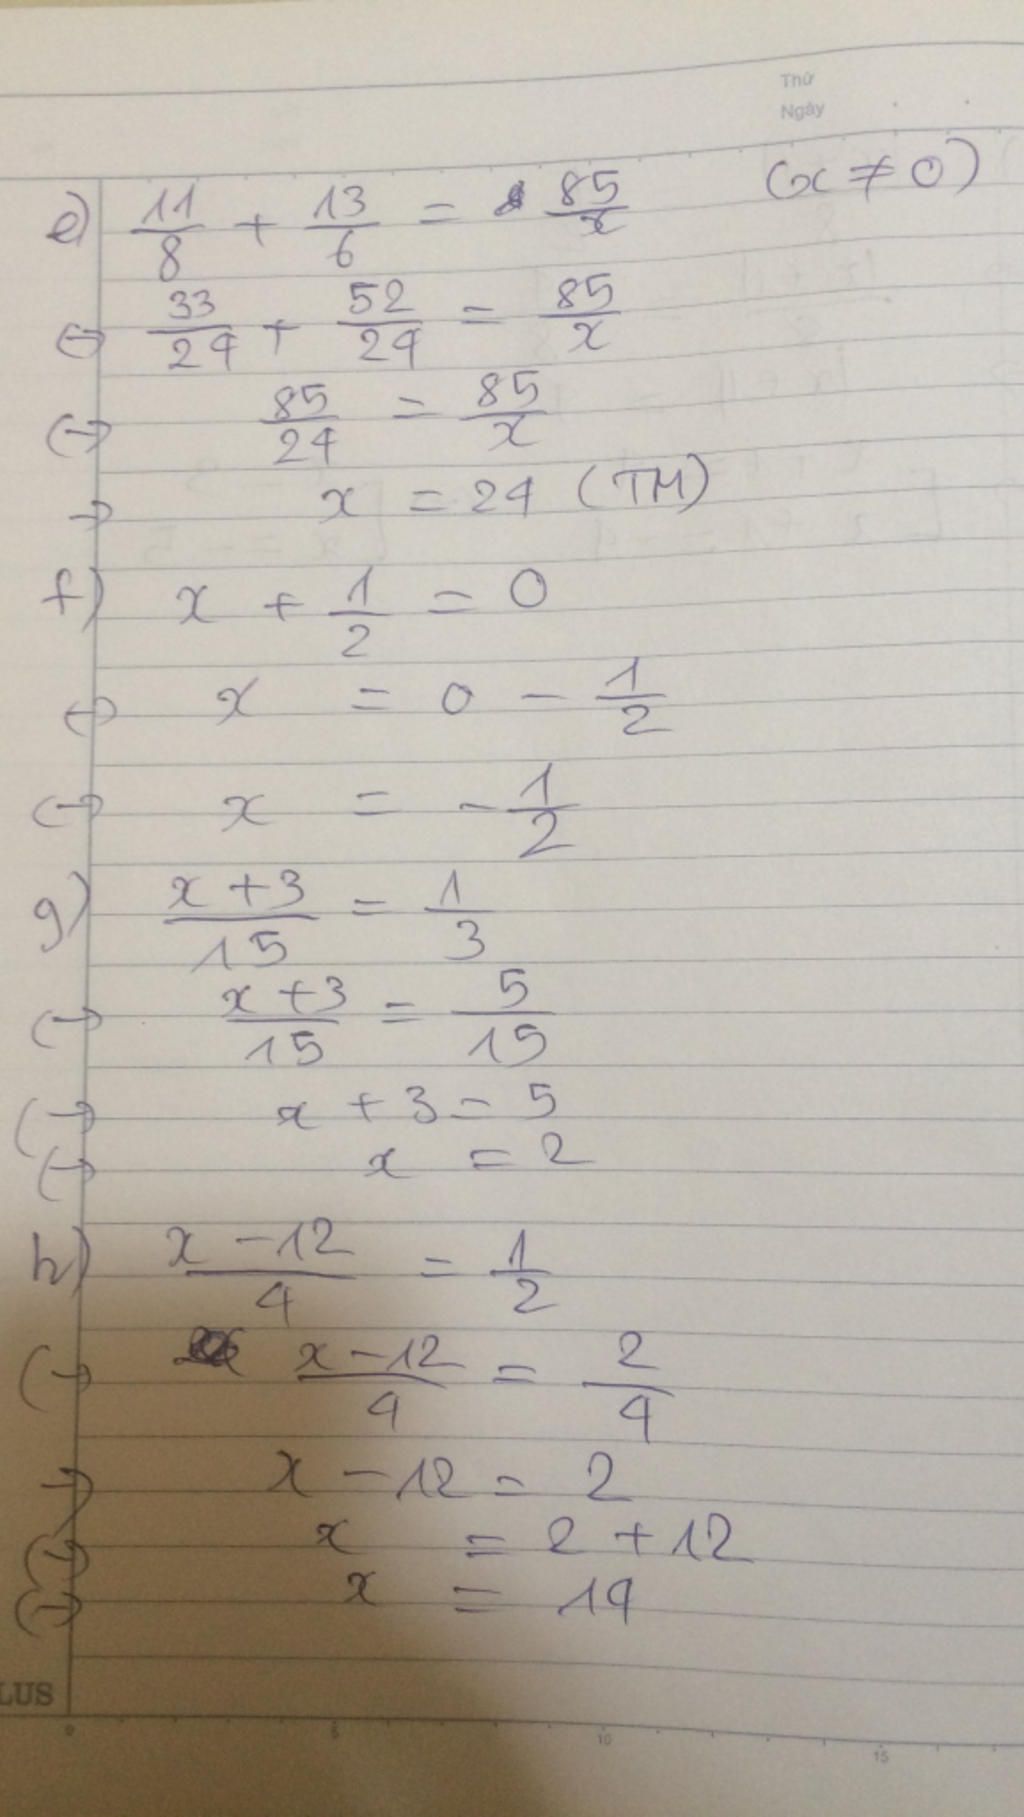 Thứ
Ngày
e) 11/8 + 13/6 = 85/x (x ≠ 0)
⇔ 33/24 + 52/24 = 85/x
⇔ 85/24 = 85/x
→ x = 24 (TM)
f) x + 1/2 = 0
⇔ x = 0 - 1/2
⇔ x = -1/2
g) x+3/15 = 1/3
⇔ x+3/15 = 5/15
⇔ x + 3 = 5
⇔ x = 2
h) x-12/4 = 1/2
⇔ x-12/4 = 2/4
⇔ x - 12 = 2
⇔ x = 2 + 12
⇔ x = 14
LUS
0 5 10 15